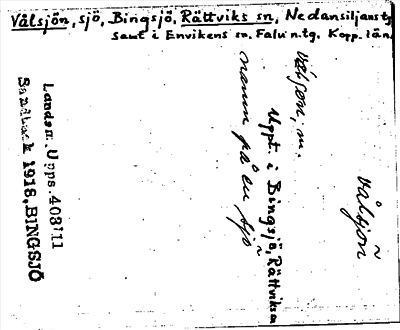 Vålsjön, sjö, Bingsjö, Rättviks sn, Nedansiljans tg
samt i Envikens sn. Falu n.tg. Kopp. län.
vålsjön
Vålsjön, m.
namn på en sjö
Uppt. i Bingsjö, Rättviks sn
Landsm. Upps. 408:11
Sandbäck 1918, BINGSJÖ